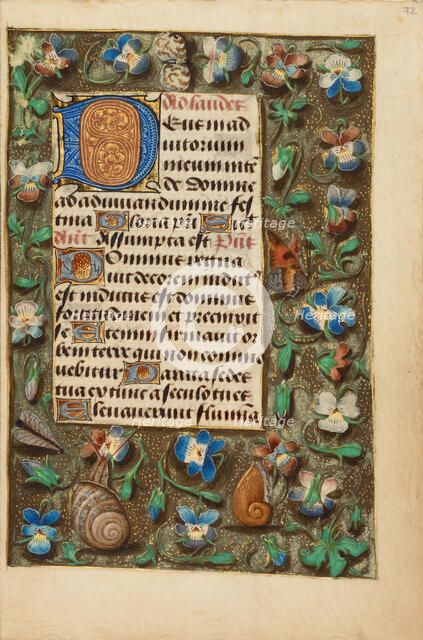 72
Ad laudes
Deus in ad
iutorium
meum inte
de domine
ad adiuuandum me fes
tina Gloria pri Sic
Assumpta est
Dominus regna
uit decorem indut
est indutus est dominus
fortitudinem et precinxit
se Etenim firmauit or
bem terre qui non commo
uebitur Parata sedes
tua ex tunc a seculo tu es
Eleuauerunt flumina